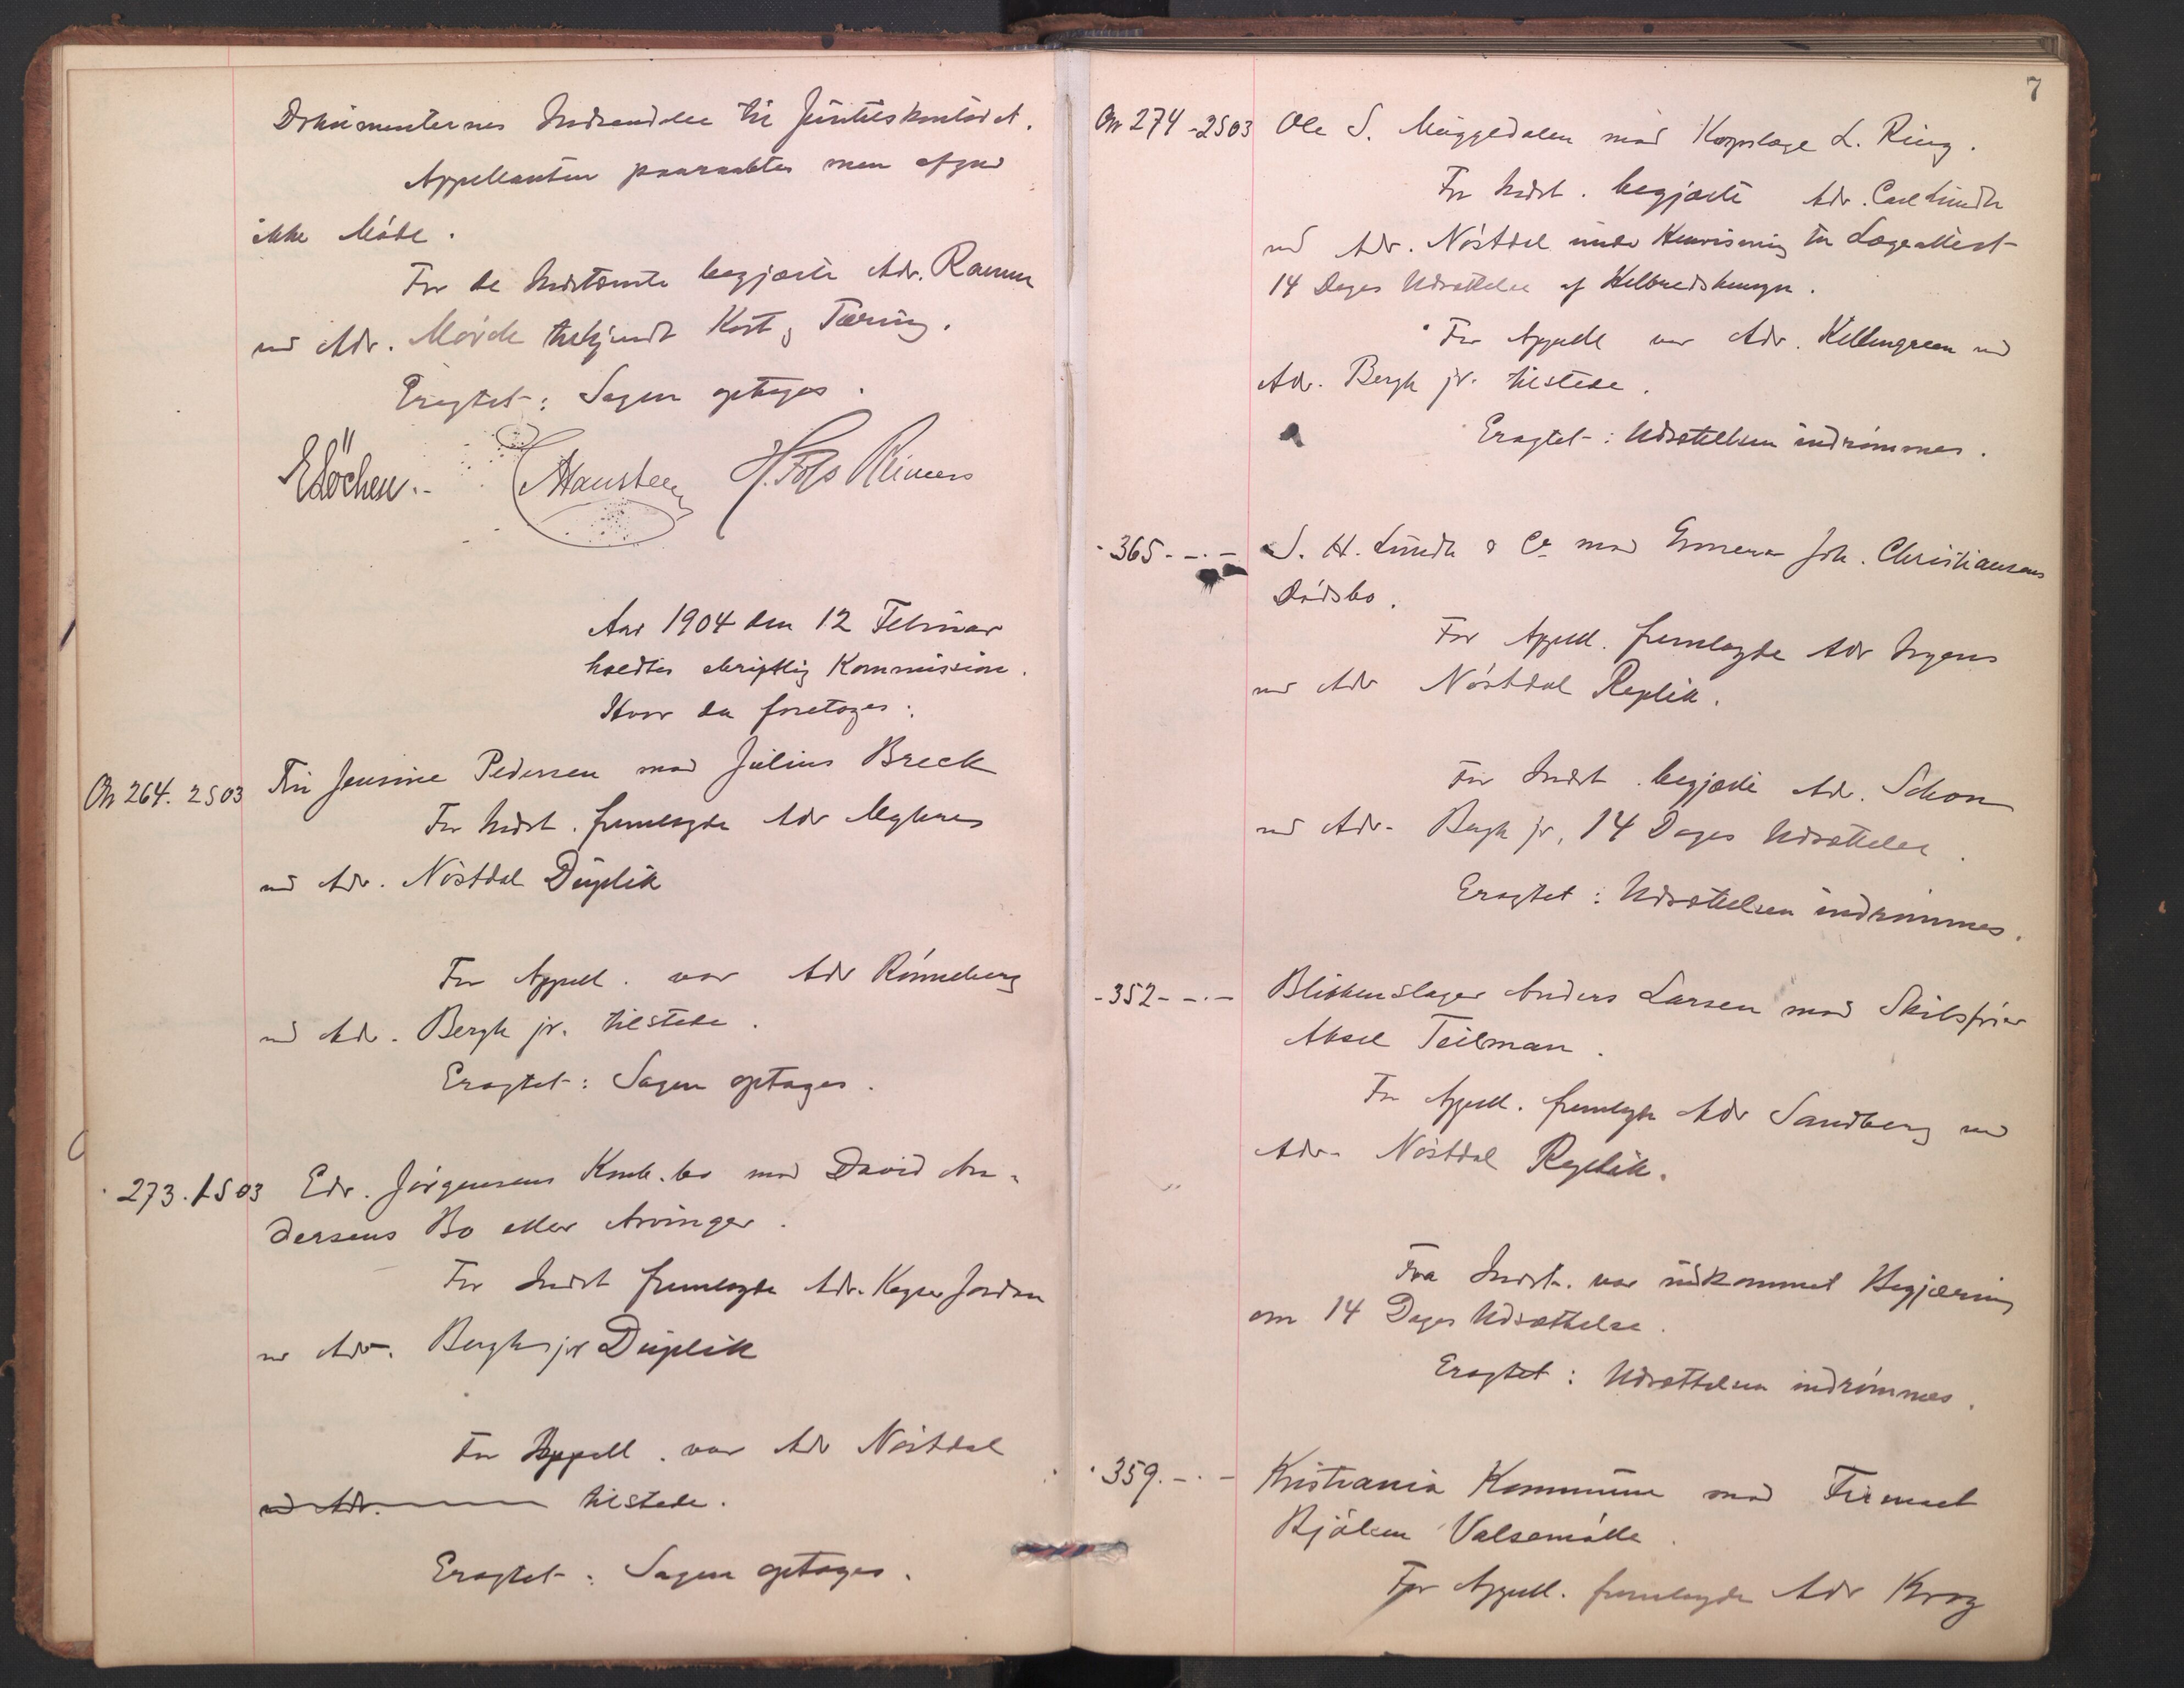 Dokumenternes Indsendelse til Justitskontoret.
Appellanten paaraabtes men afgav
ikke Møde.
For de Indstevnte begjærte Adv. Ramm
ved Adv. Mørch tilkjendt Kost og Tæring.
Eragtet: Sagen optages.
E Løchen. Hansteen H. Foss Reimers
Aar 1904 den 12 Februar
holdtes skriftlig Kommission.
Hvor da foretoges:
On 264. 2S03 Fru Jensine Pedersen mod Julius Breck
For Indst. fremlagde Adv
ved Adv. Nöstdal Duplik
For Appell. var Adv Rönneberg
ved Adv. Bergh jr. tilstede.
Eragtet: Sagen optages.
273. 1S03 Edv. Jörgensens Konk.bo mod David An-
dersens Bo eller Arvinger.
For Indst fremlagde Adv. Keyser Jordan
ved Adv. Bergh jr Duplik
For Appell. var Adv Nöstdal
ved Adv. tilstede.
Eragtet: Sagen optages.
7
On 274-2S03 Ole S. Muggedalen mod Korpslæge L. Ring.
For Indst. begjærte Adv. Carl Lundh
ved Adv. Nöstdal under Henvisning til Lægeattest
14 Dages Udsættelse af Helbredshensyn.
For Appell var Adv. Kellengreen ved
Adv. Bergh jr. tilstede.
Eragtet: Udsættelsen indrömmes.
-365- -.- S. H. Lundh & Co mod Joh. Christiansens
Dödsbo.
For Appell. fremlagde Adv Irgens
ved Adv Nöstdal Replik.
For Indst. begjærte Adv. Schou
ved Adv. Bergh jr. 14 Dages Udsættelse.
Eragtet: Udsættelsen indrömmes.
-352- -.- Blikkenslager Anders Larsen mod Skibsfører
Aksel Teilman.
For Appell. fremlagde Adv Sandberg ved
Adv. Nöstdal Replik.
Fra Indst. var indkommet Begjæring
om 14 Dages Udsættelse.
Eragtet: Udsættelsen indrömmes.
-359.-.- Kristiania Kommune mod Firmaet
Bjölsen Valsemölle.
For Appell. fremlagde Adv Krog